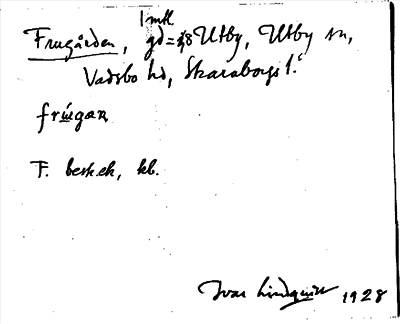 1 mtl.
Frugården, gd = 28 Utby, Utby sn,
Vadsbo hd, Skaraborgs l.
frúgaʀ
F. besk.ek, kb.
Ivar Lindquist 1928